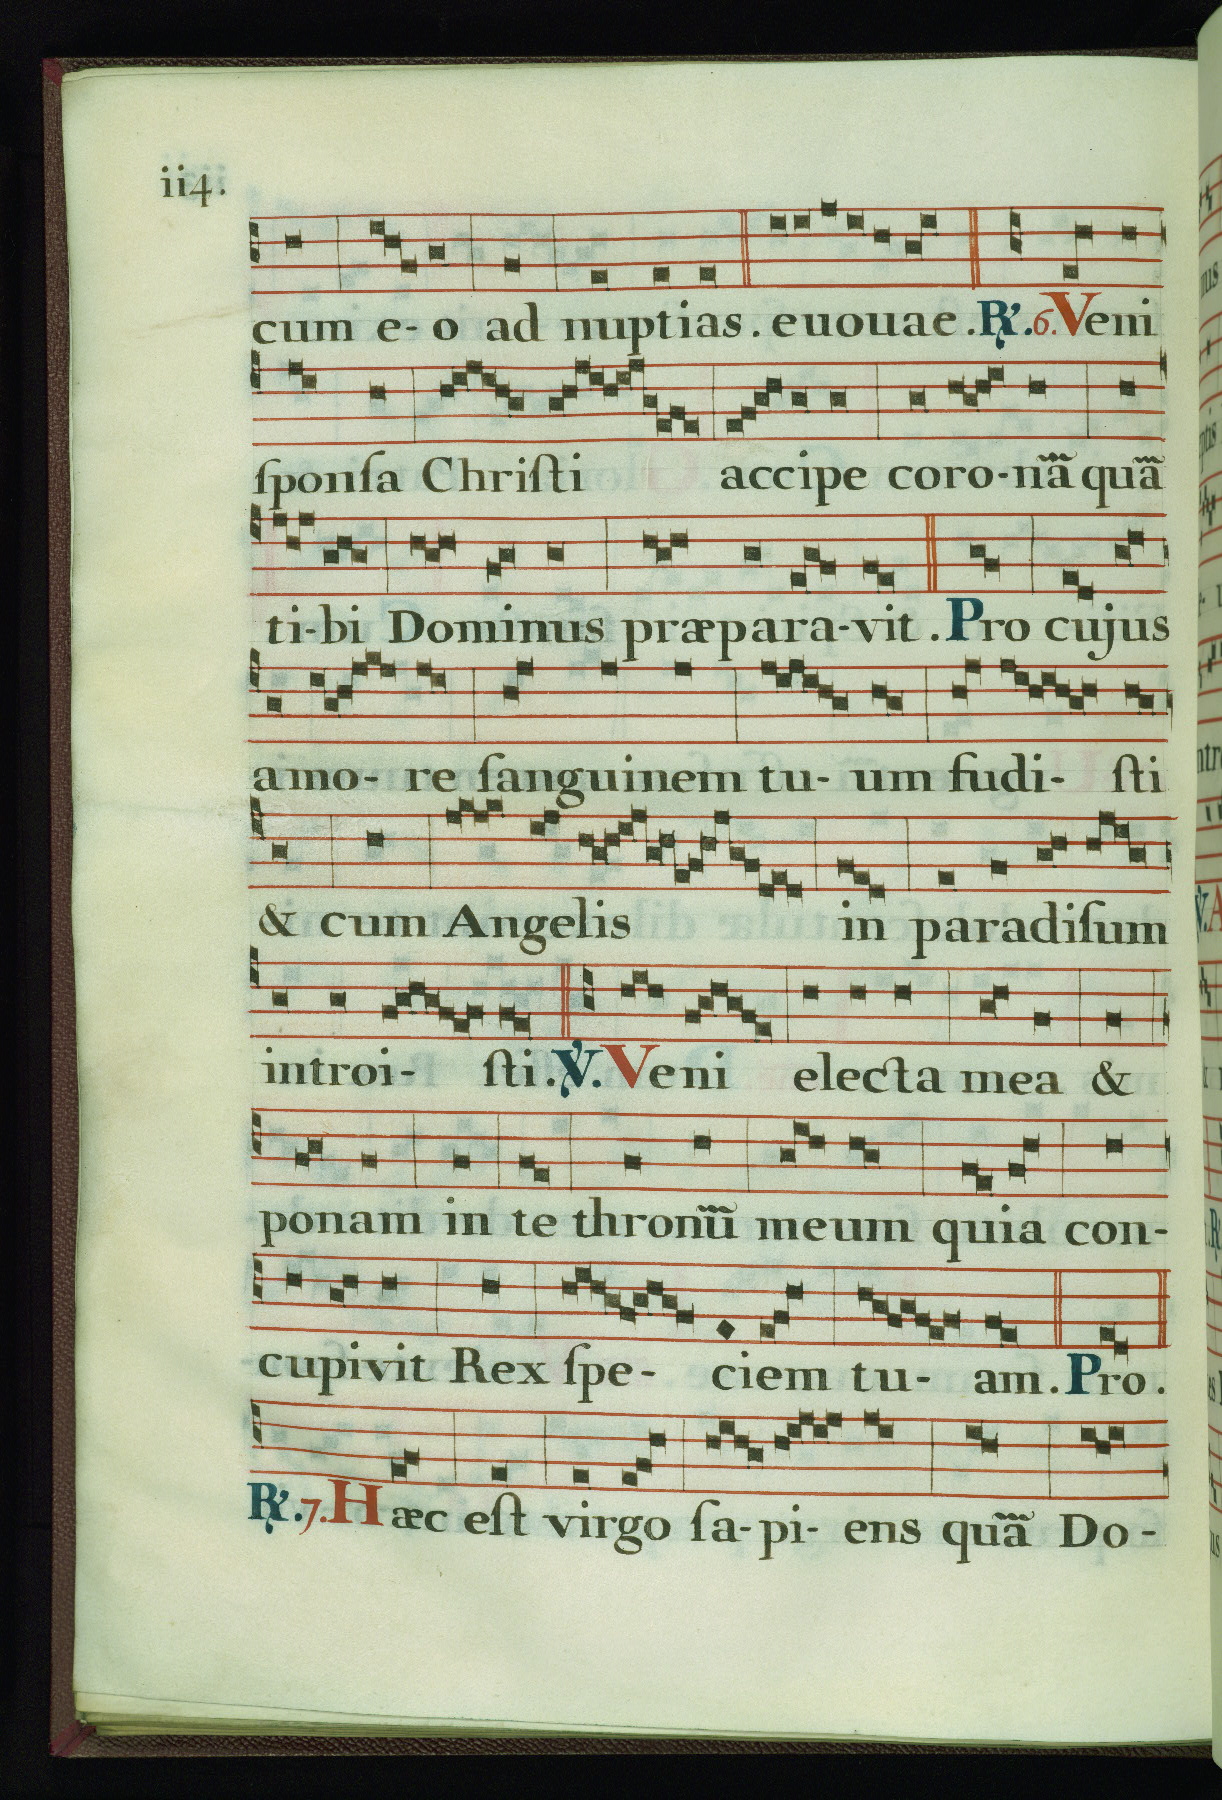 ii4.
cum e-o ad nuptias. euouae. ℟. 6. Veni
ſponſa Chriſti accipe coro-nā quā
ti-bi Dominus præpara-vit. Pro cujus
amo-re ſanguinem tu-um fudi-ſti
& cum Angelis in paradiſum
introi-ſti. ℣. Veni electa mea &
ponam in te thronū meum quia con-
cupivit Rex ſpe-ciem tu-am. Pro.
℟. 7. Hæc eſt virgo ſa-pi-ens quā Do-